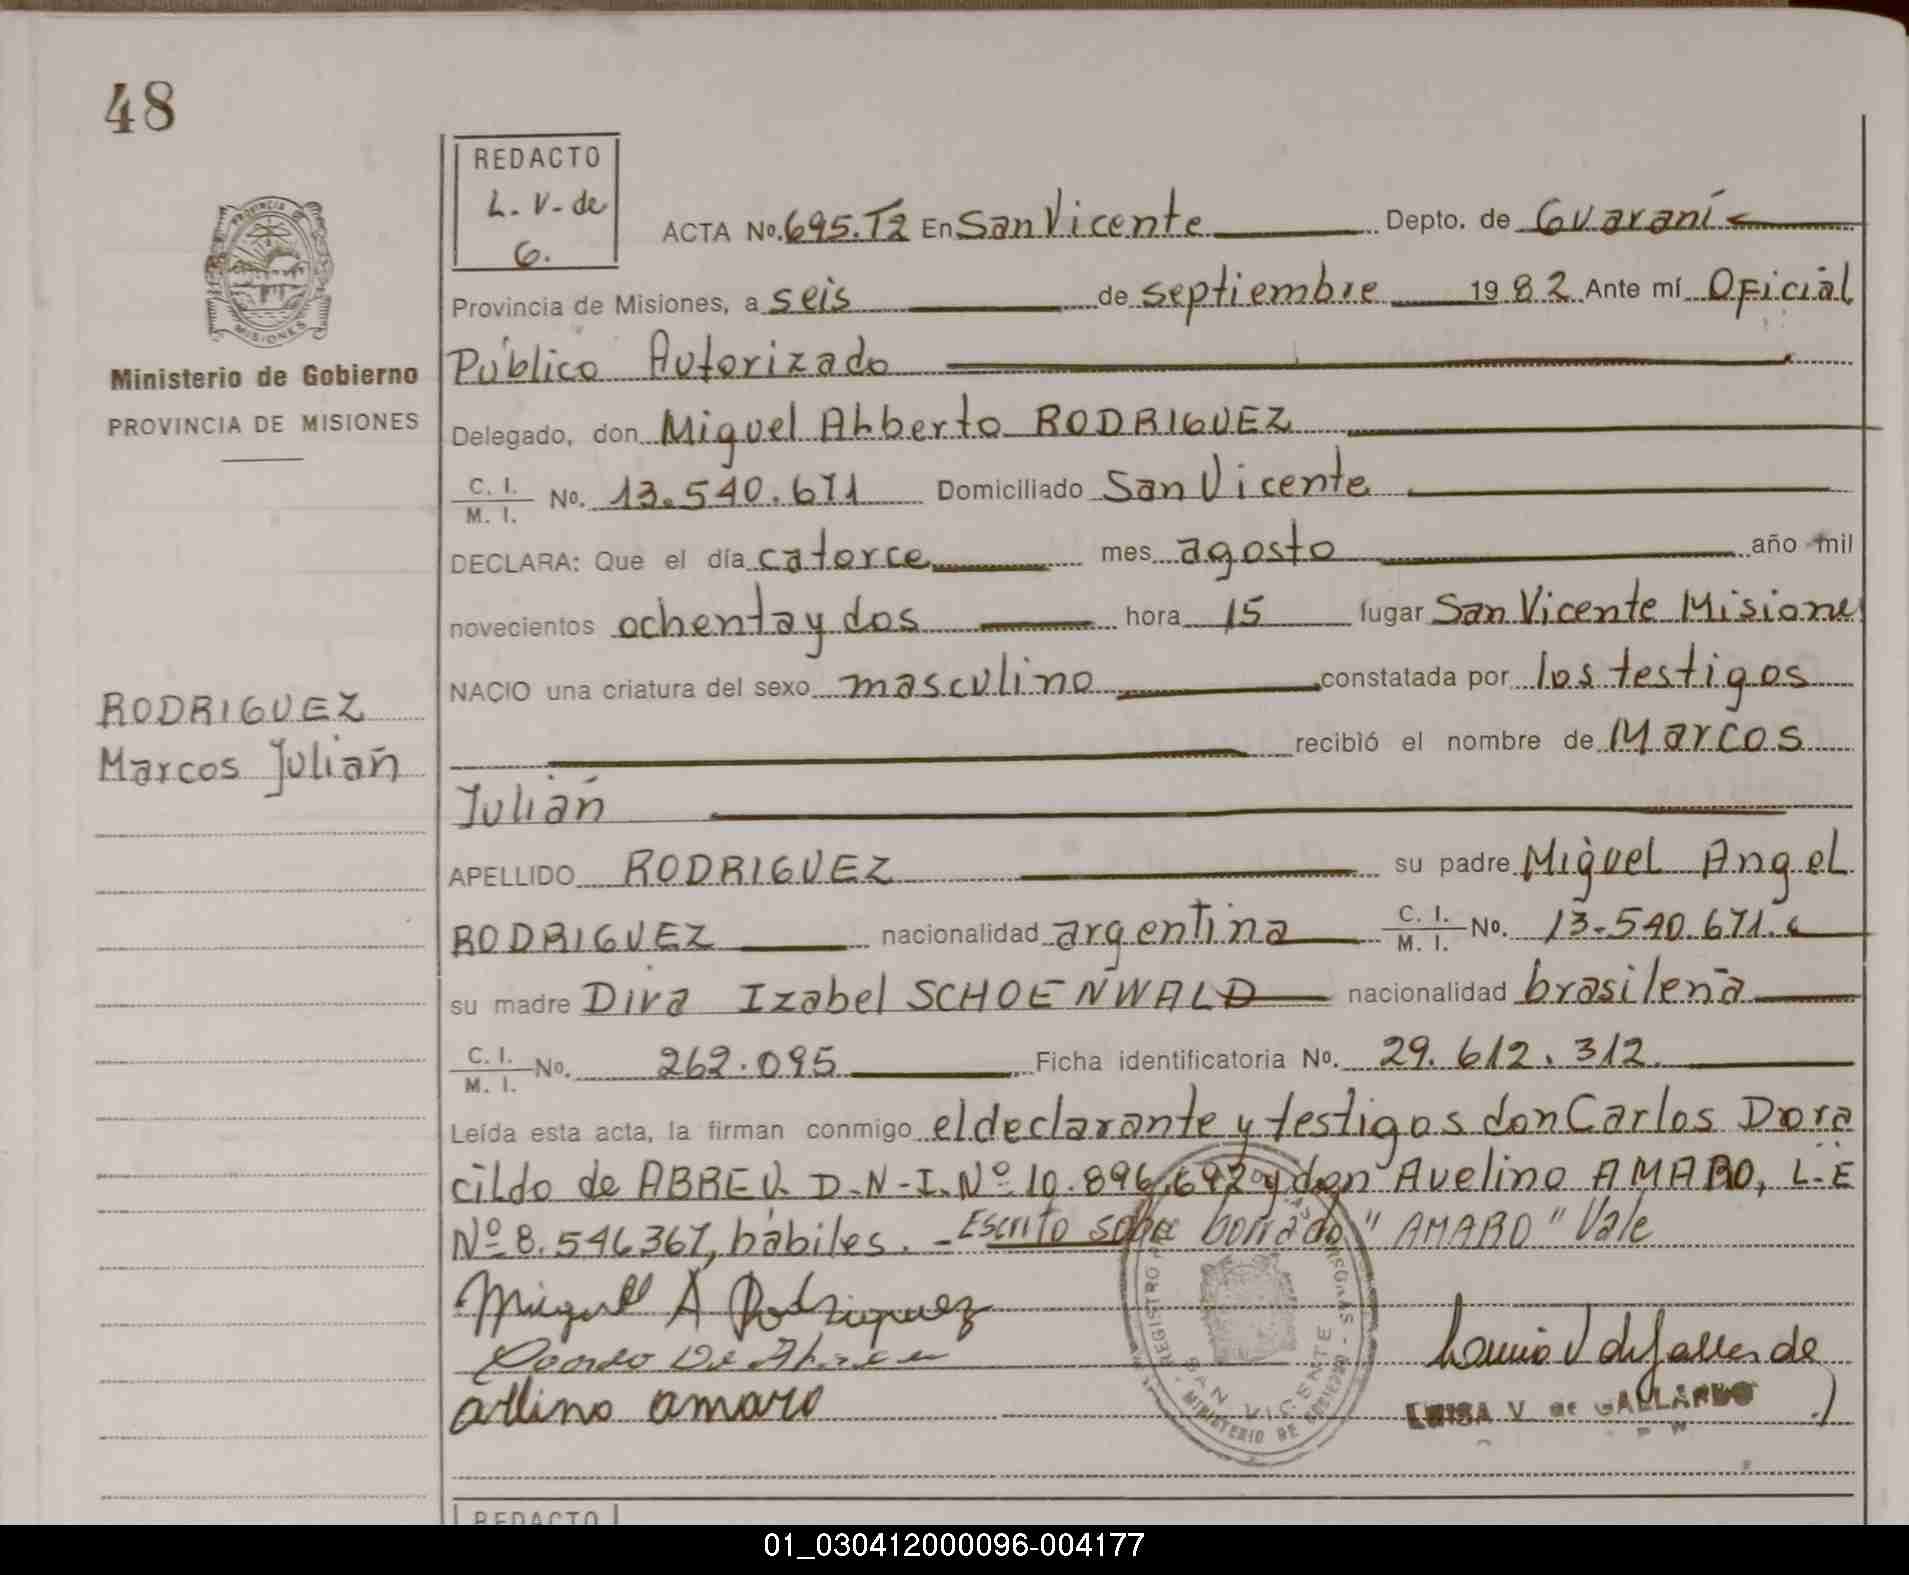 48
REDACTO
L. V. de
G.
PROVINCIA
MISIONES
Ministerio de Gobierno
PROVINCIA DE MISIONES
ACTA No. 695.T2 En San Vicente Depto. de Guaraní
Provincia de Misiones, a seis de septiembre 1982 Ante mí Oficial
Público Autorizado
Delegado, don Miguel Alberto RODRIGUEZ
C. I.
M. I. No. 13.540.671 Domiciliado San Vicente
DECLARA: Que el día catorce mes agosto año mil
novecientos ochenta y dos hora 15 lugar San Vicente Misiones
NACIO una criatura del sexo masculino constatada por los testigos
recibió el nombre de Marcos
Julián
RODRIGUEZ
Marcos Julián
APELLIDO RODRIGUEZ su padre Miguel Angel
RODRIGUEZ nacionalidad argentina C. I.
M. I. No. 13.540.671.
su madre Diva Izabel SCHOENWALD nacionalidad brasileña
C. I.
M. I. No. 262.095 Ficha identificatoria No. 29.612.312.
Leída esta acta, la firman conmigo el declarante y testigos don Carlos Dora
cildo de ABREU. D-N-I. Nº 10.896.692 y don Avelino AMARO, L-E
Nº 8.546367, hábiles. - Escrito sobre borrado "AMARO" Vale
Miguel A Rodriguez
De Abreu
amaro
REGISTRO
SAN VICENTE
MINISTERIO DE GOBIERNO
LUISA V. DE GALLARDO
REDACTO
01_030412000096-004177